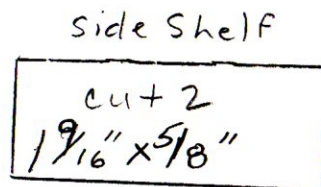 side Shelf
cut 2
1 9/16" x 5/8"